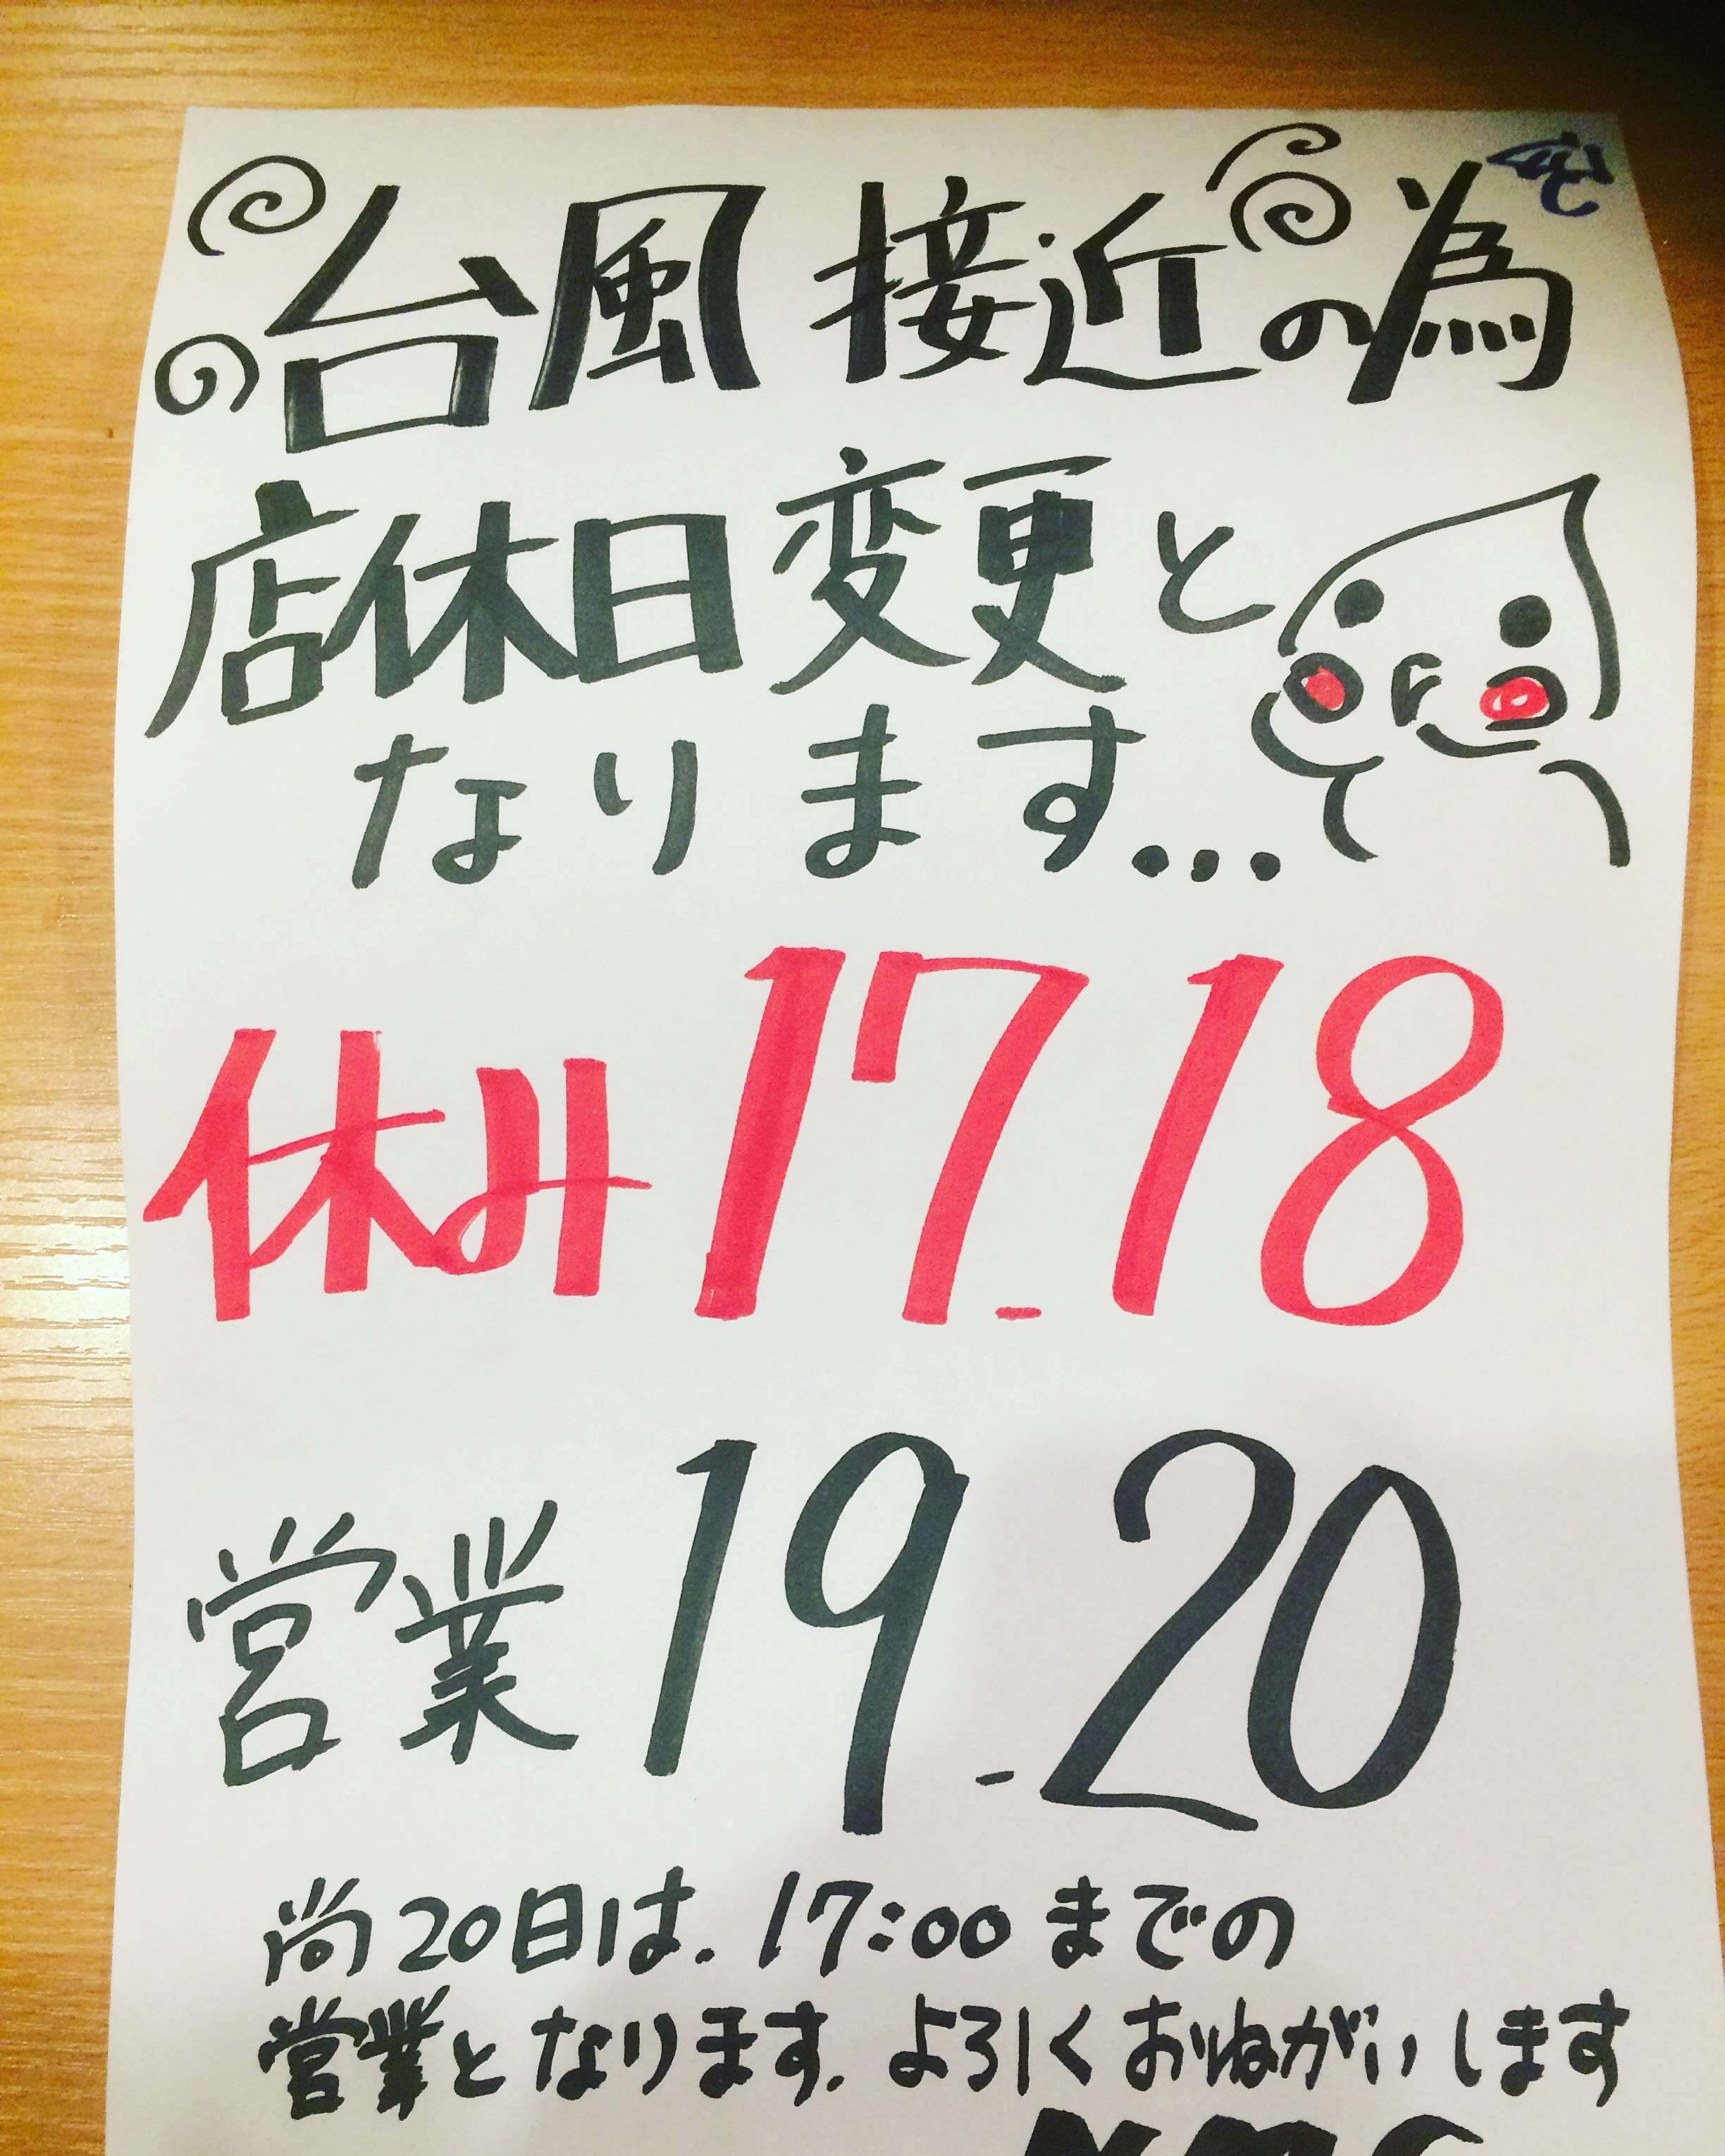 台風接近の為
店休日変更と
なります...
休み 17.18
営業 19.20
尚20日は.17:00までの
営業となります.よろしくおねがいします